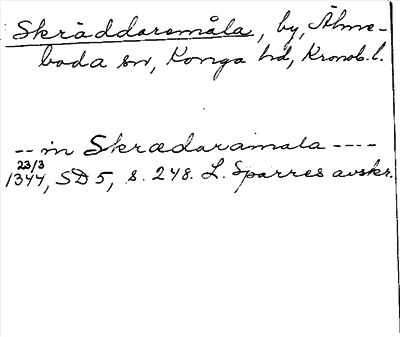 Skräddaremåla, by, Älme-
boda sn, Konga hd, Kronob. l.
-- in Skrædaramala ----
23/3
1344, SD 5, s. 248. L. Sparres avskr.